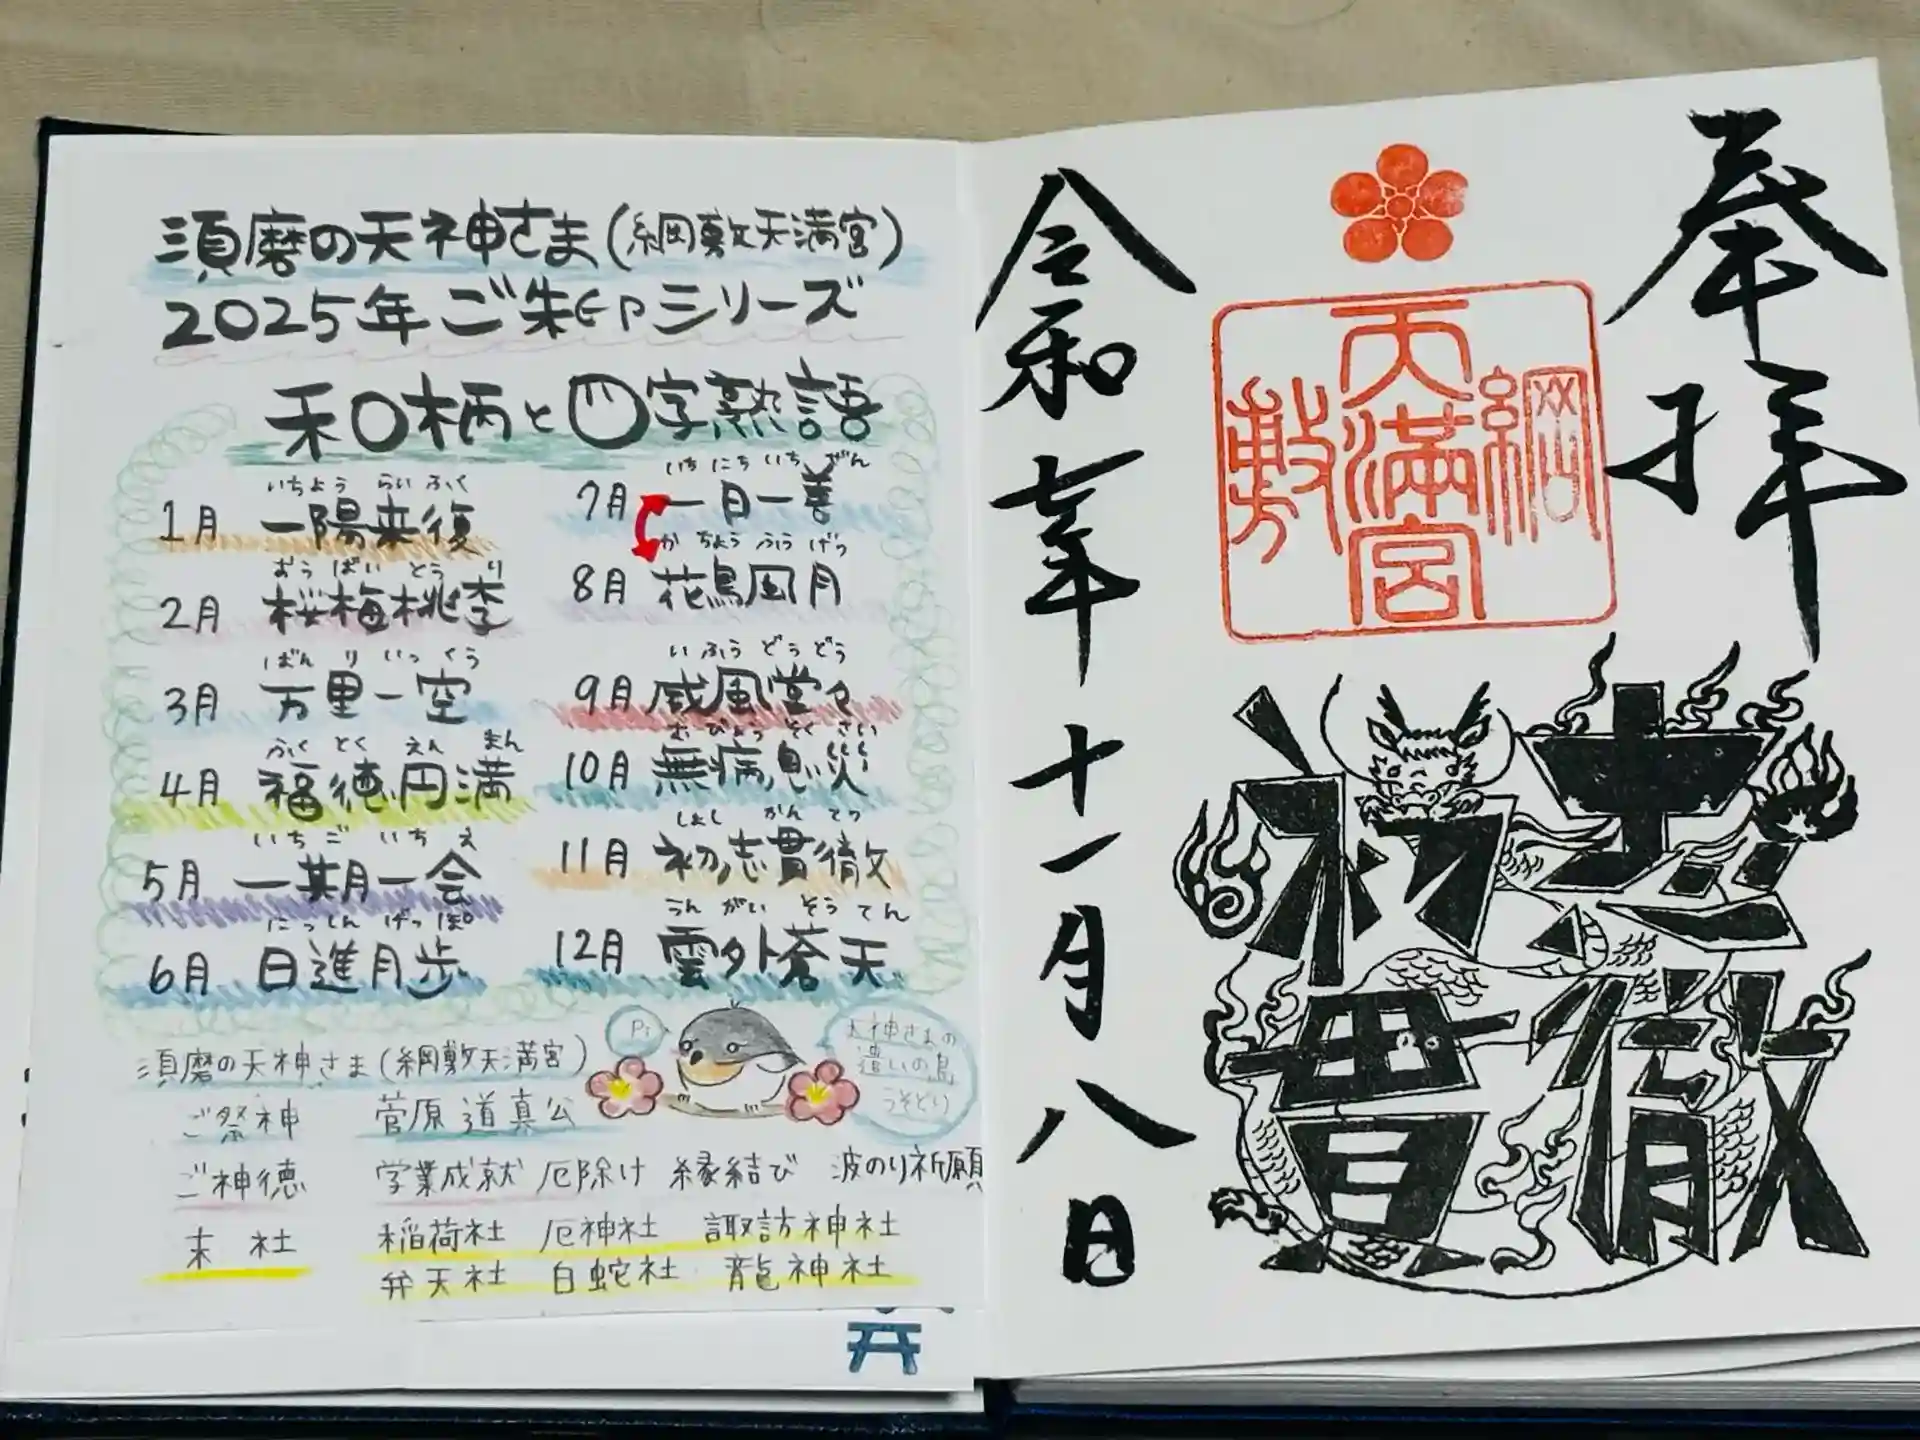 須磨の天神さま(綱敷天満宮)
2025年ご朱印シリーズ
和柄と四字熟語
いちよう らい ふく
1月 一陽来復
おう ばい とう り
2月 桜梅桃李
ばん り いっ くう
3月 万里一空
ふく とく えん まん
4月 福徳円満
いち ご いち え
5月 一期一会
にっ しん げっ ぽ
6月 日進月歩
いち にち いち ぜん
7月 一日一善
か ちょう ふう げつ
8月 花鳥風月
い ふう どう どう
9月 威風堂々
む びょう そく さい
10月 無病息災
しょし かん てつ
11月 初志貫徹
うん がい そう てん
12月 雲外蒼天
Pi
天神さまの
遣いの鳥
うそどり
須磨の天神さま(綱敷天満宮)
ご祭神 菅原道真公
ご神徳 学業成就 厄除け 縁結び 波のり祈願
末社 稲荷社 厄神社 諏訪神社
弁天社 白蛇社 龍神社
奉拝
綱
天満宮
敷
初志
貫徹
令和七年十一月八日